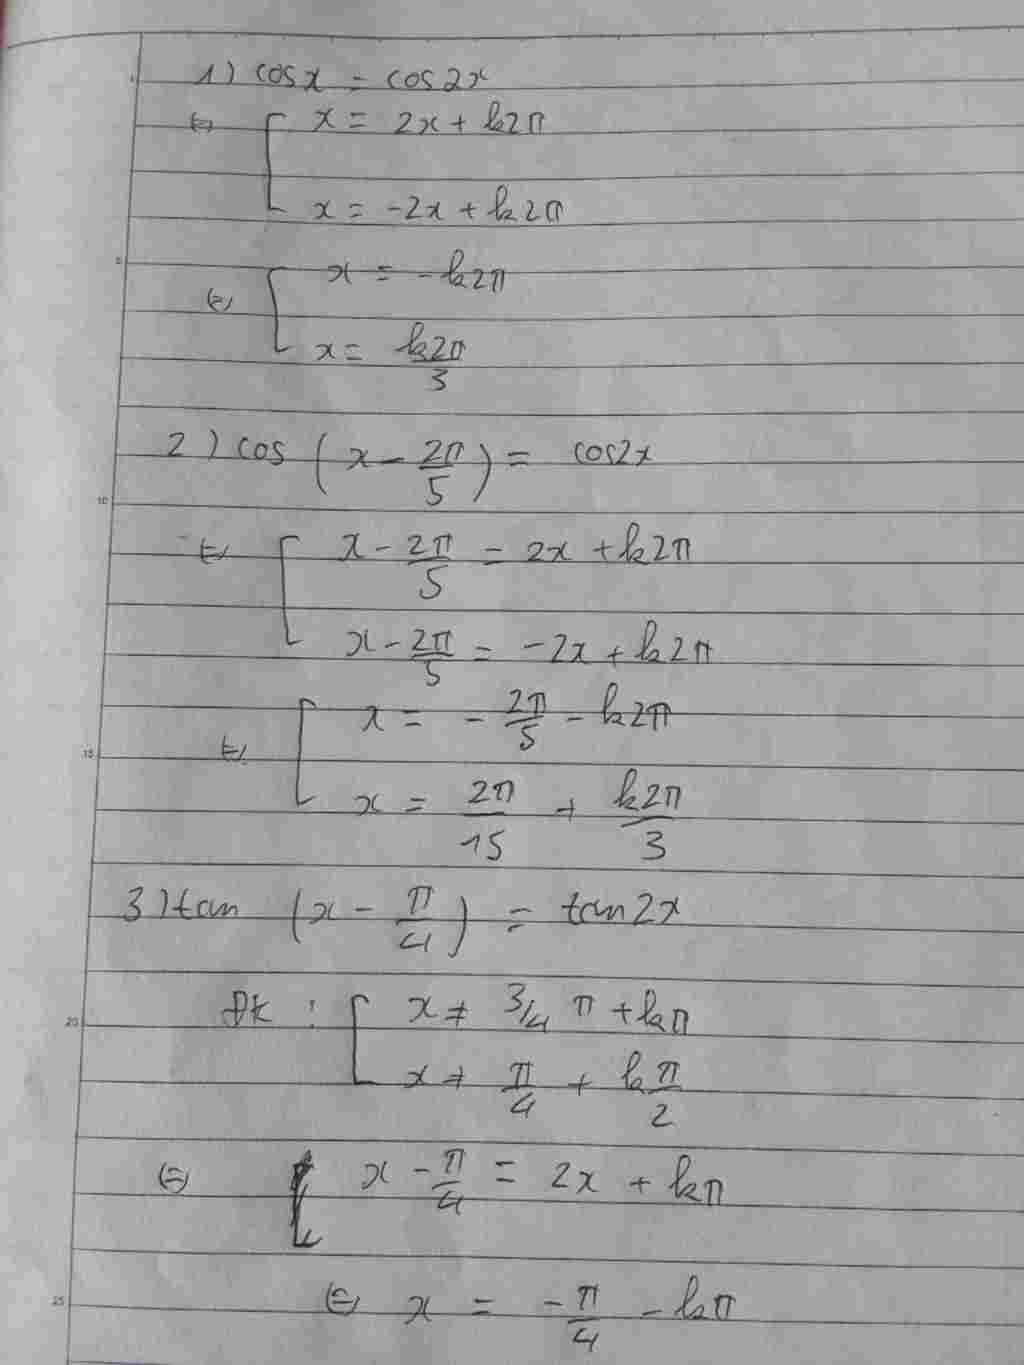 1) cosx = cos2x
⇔ [ x = 2x + k2π
x = -2x + k2π
⇔ [ x = -k2π
x = k2π/3
2) cos (x - 2π/5) = cos2x
⇔ [ x - 2π/5 = 2x + k2π
x - 2π/5 = -2x + k2π
⇔ [ x = - 2π/5 - k2π
x = 2π/15 + k2π/3
3) tan (x - π/4) = tan2x
Đk : [ x ≠ 3/4 π + kπ
x ≠ π/4 + kπ/2
⇔ x - π/4 = 2x + kπ
⇔ x = -π/4 - kπ
5
10
15
20
25